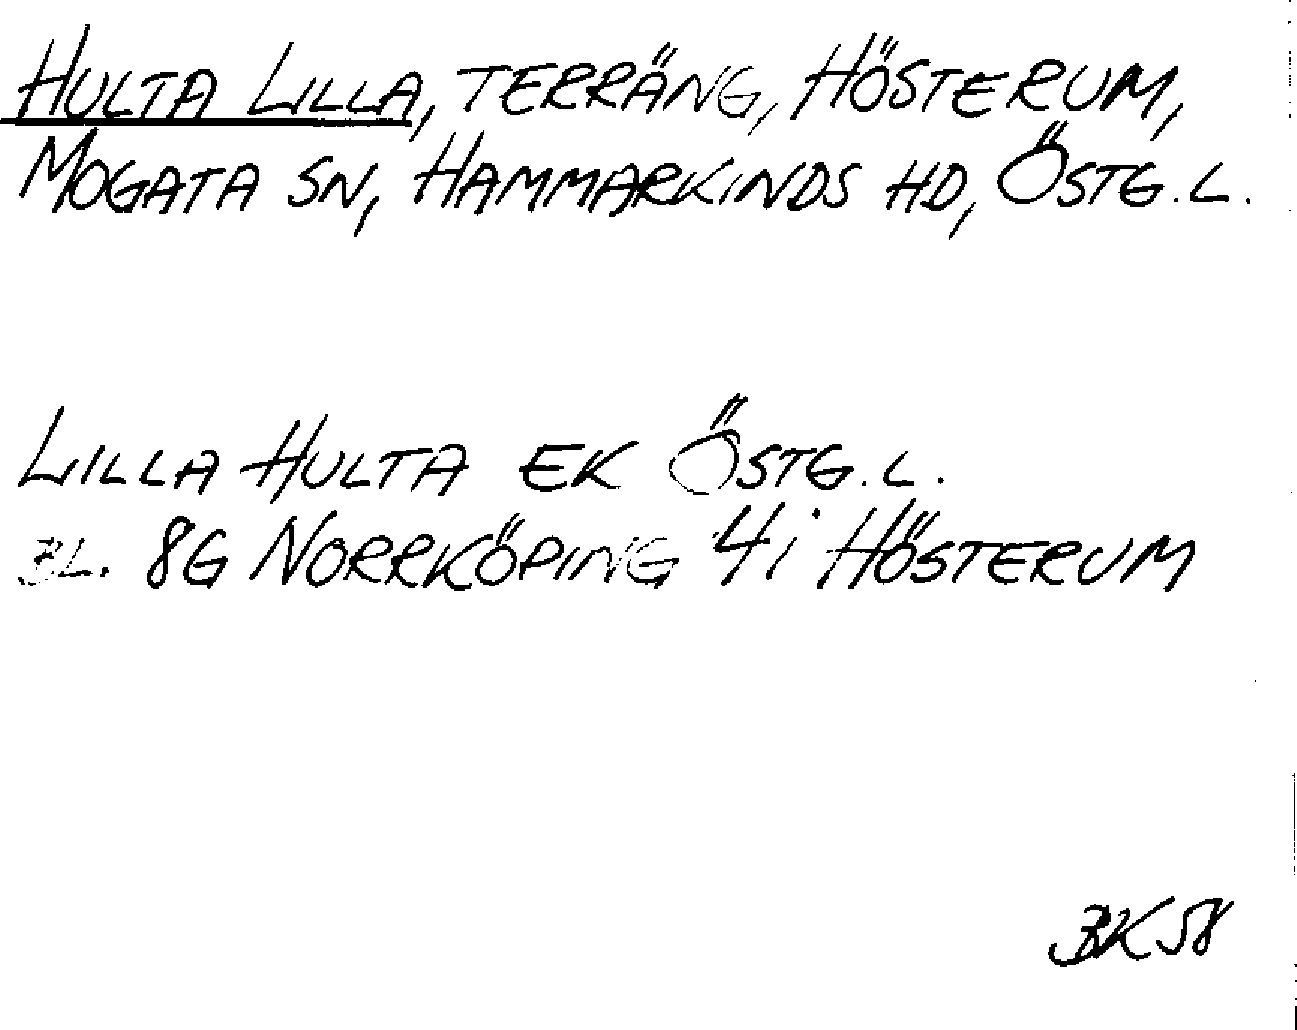 HULTA LILLA, TERRÄNG, HÖSTERUM,
MOGATA SN, HAMMARKINDS HD, ÖSTG. L.
LILLA HULTA EK ÖSTG. L.
BL. 8G NORRKÖPING 4i HÖSTERUM
BK 58